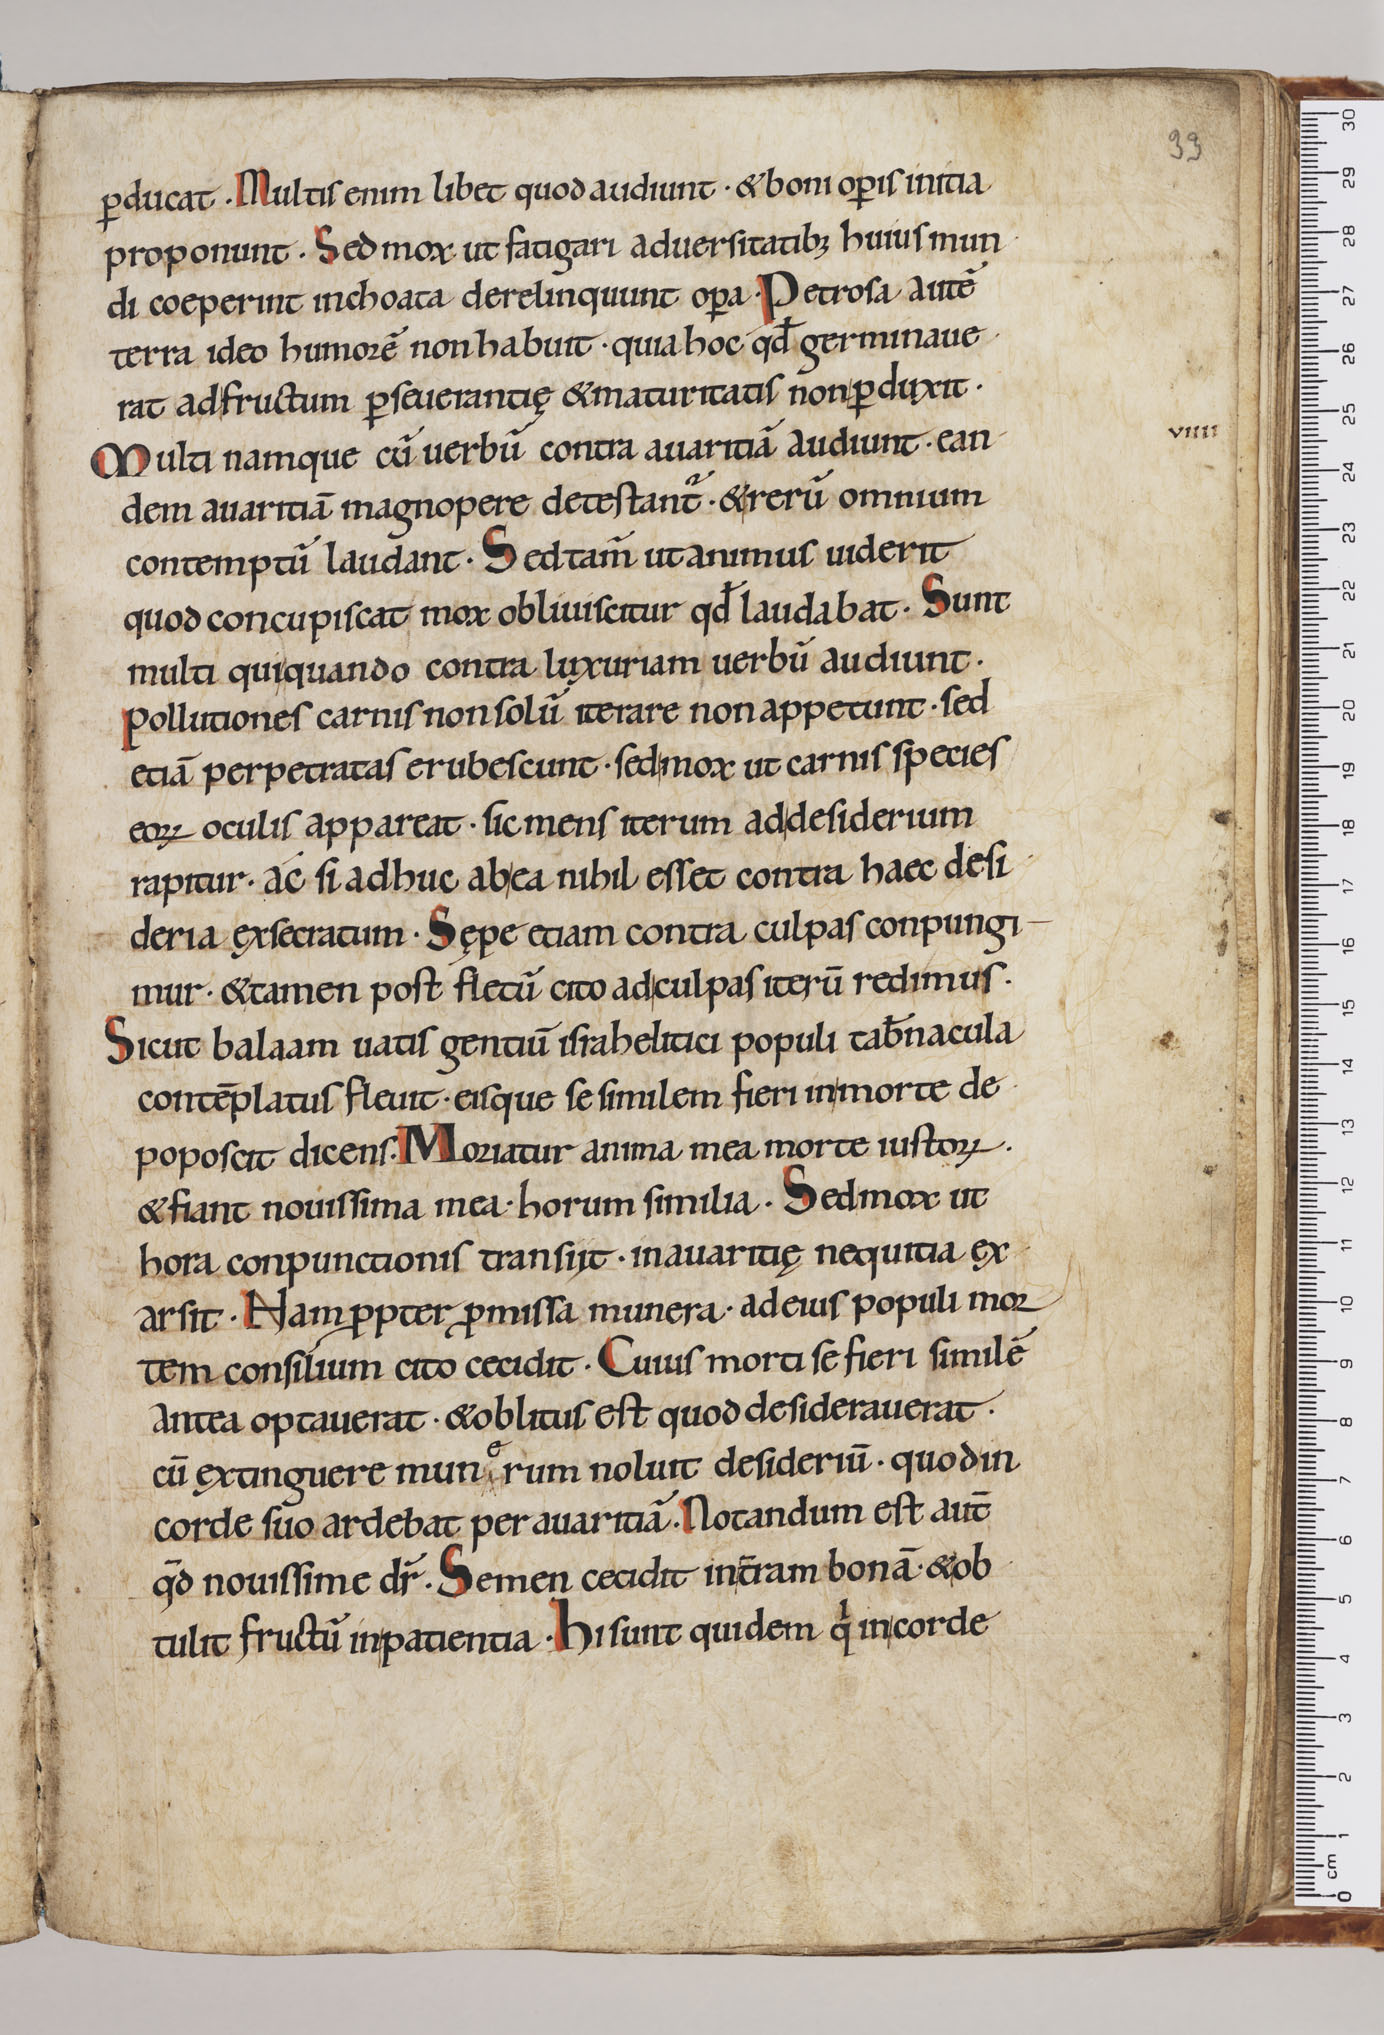 33
ꝑducat · Multis enim libet quod audiunt · & boni oꝑis initia
proponunt · Sed mox ut fatigari aduersitatibꝫ huius mun
di coeperint inchoata derelinquunt oꝑa · Petrosa autē
terra ideo humorē non habuit · quia hoc qđ germinaue
rat ad fructum ꝑseuerantię & maturitatis non ꝑduxit ·
viiii
Multi namque cū uerbū contra auaritiā audiunt · ean
dem auaritiā magnopere detestant᷑ · & rerū omnium
contemptū laudant · Sed tam̄ ut animus uiderit
quod concupiscat mox obliuiscitur qđ laudabat · Sunt
multi qui quando contra luxuriam uerbū audiunt ·
Pollutiones carnis non solū iterare non appetunt · sed
etiā perpetratas erubescunt · sed mox ut carnis species
eoꝝ oculis appareat · sic mens iterum ad desiderium
rapitur · ac si adhuc ab ea nihil esset contra haec desi
deria exsecratum · Sępe etiam contra culpas conpungi
mur · & tamen post fletū cito ad culpas iterū redimus ·
Sicut balaam uatis gentiū israhelitici populi tab̄nacula
contēplatus fleuit · eisque se similem fieri in morte de
poposcit dicens · Moriatur anima mea morte iustoꝝ ·
& fiant nouissima mea · horum similia · Sed mox ut
hora conpunctionis transiit · in auaritię nequitia ex
arsit · Nam ꝓpter ꝓmissa munera · ad eius populi mor
tem consilium cito cecidit · Cuius morti se fieri similē
antea optauerat · & oblitus est quod desiderauerat ·
cū extinguere munerum noluit desideriū · quod in
corde suo ardebat per auaritiā · Notandum est aut̄
qd̄ nouissime dr̄ · Semen cecidit in t̄ram bonā · & ob
tulit fructū in patientia · Hi sunt quidem qͥ in corde